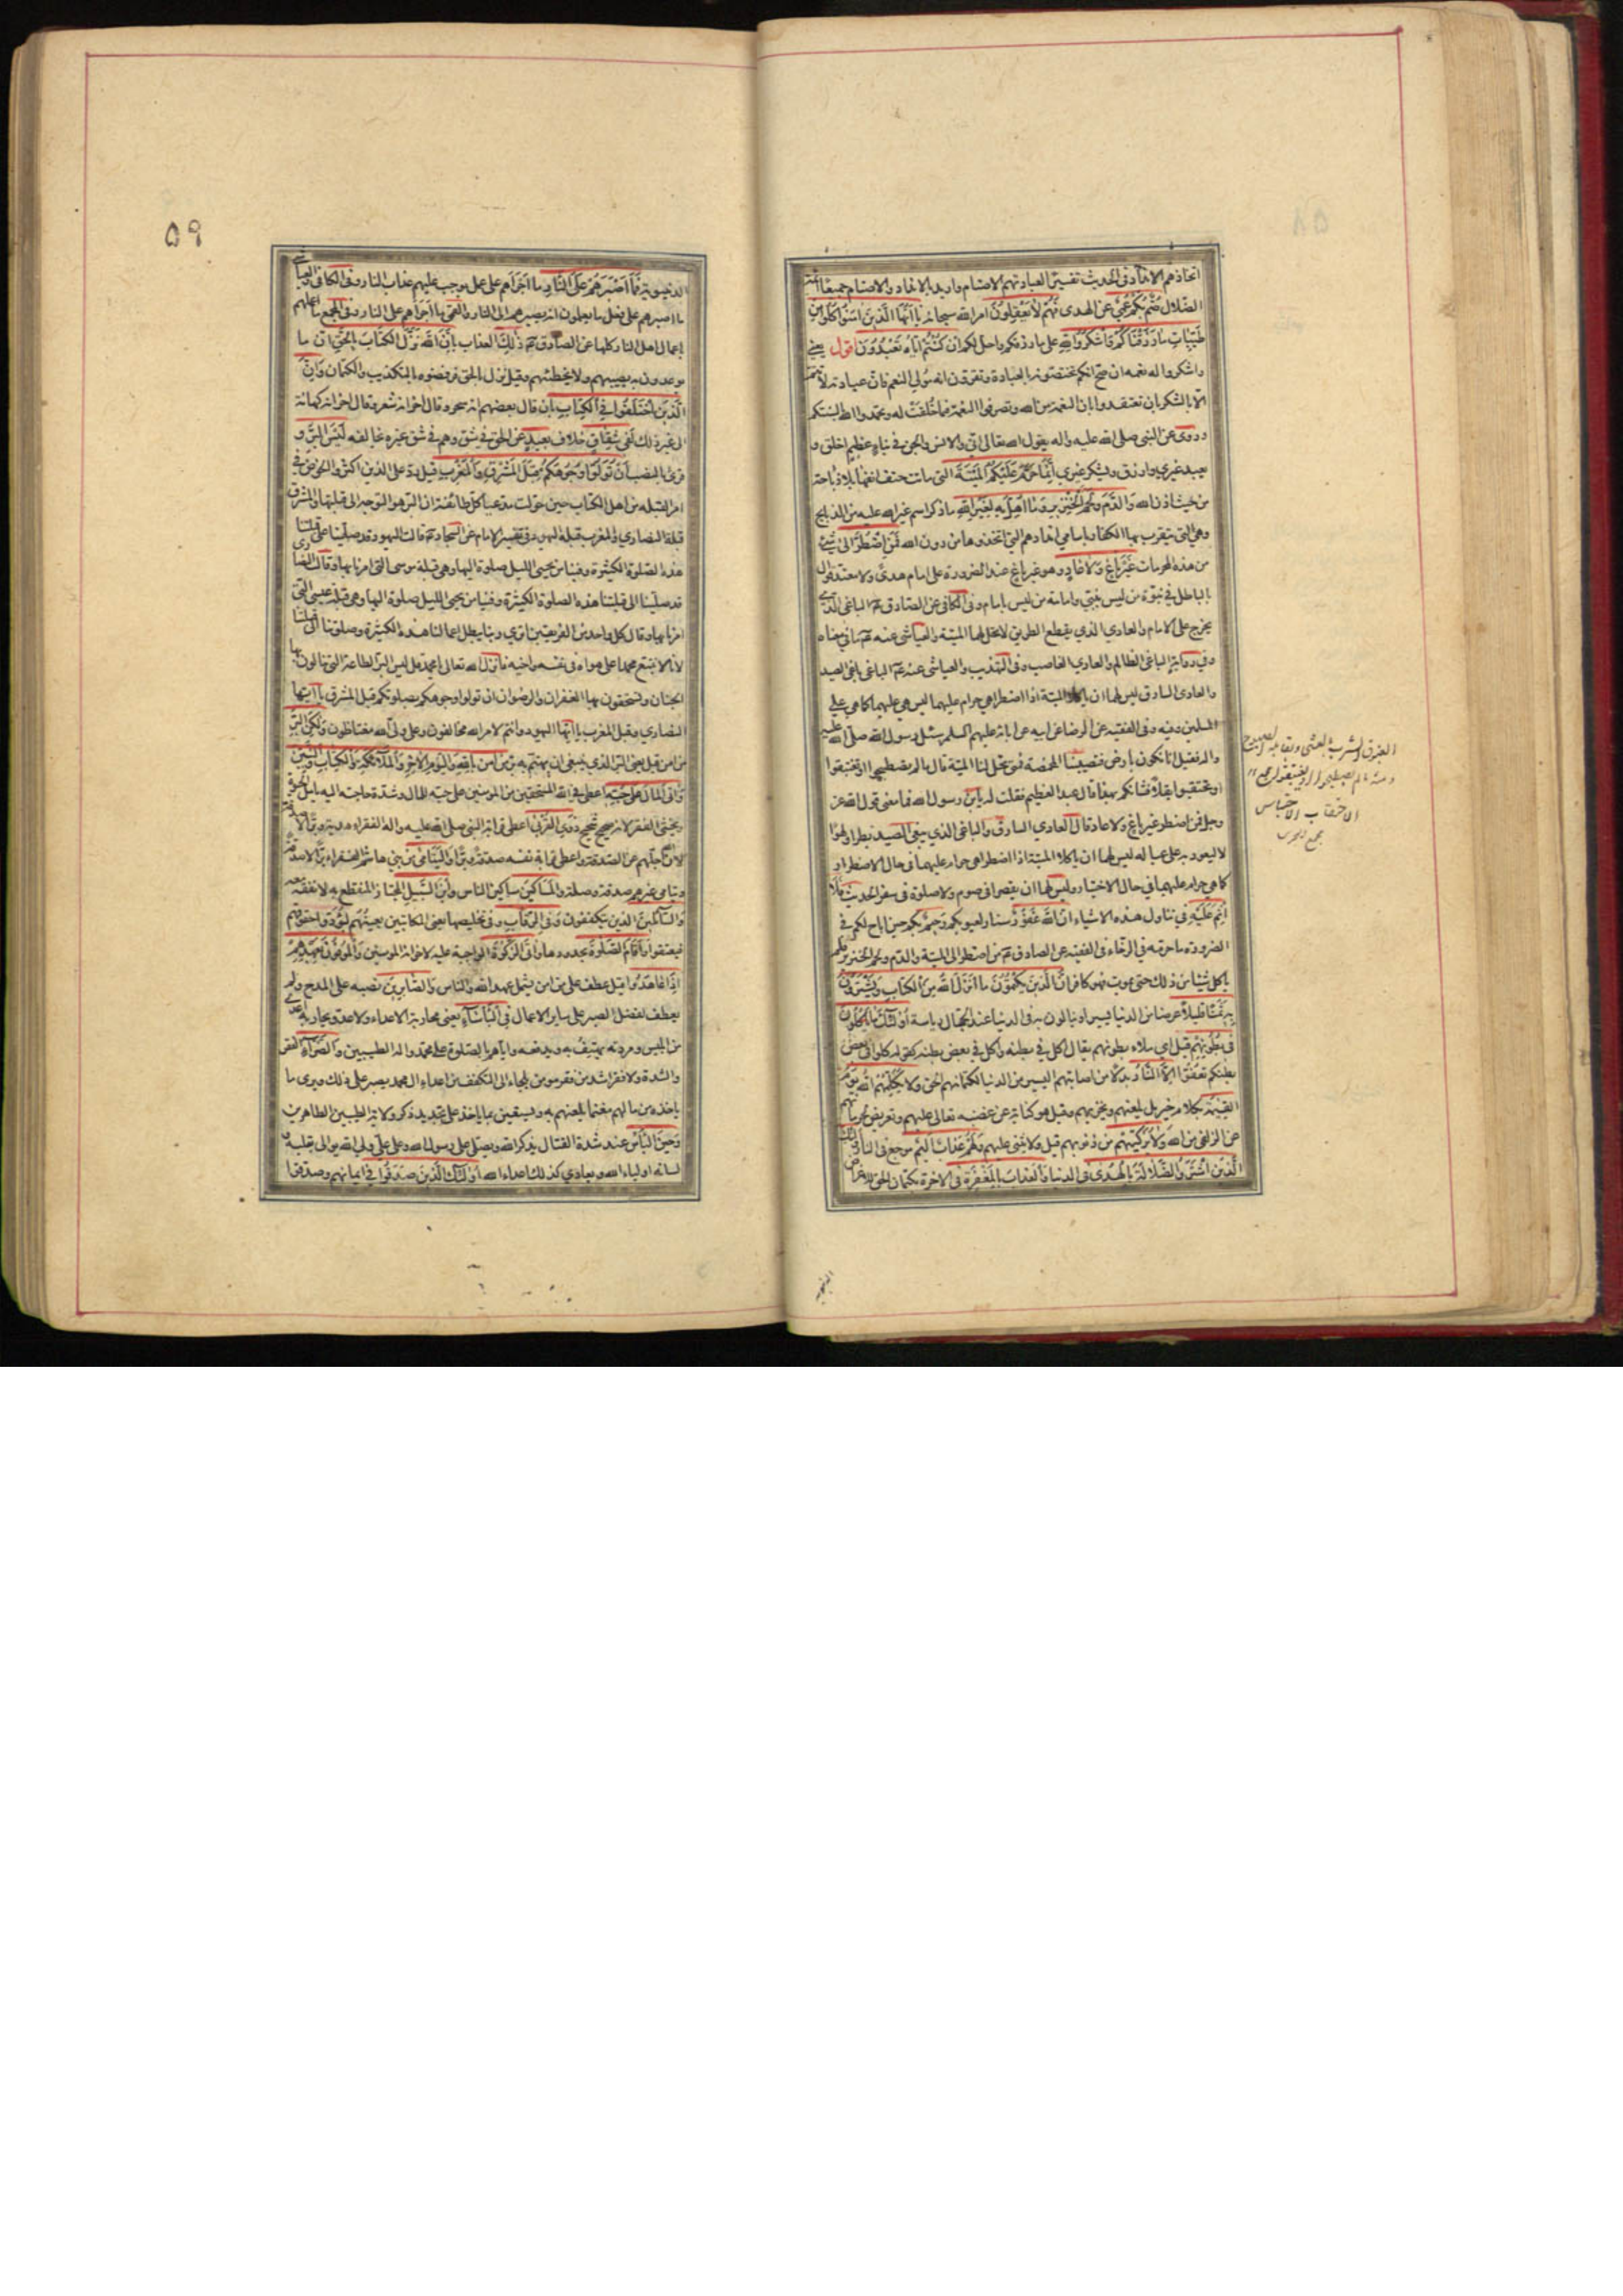 اتخاذهم الانداد وفى الحديث تفسير العبادتهم الاصنام واريد بالانداد والاصنام جميعا ائمة
الضلال صُمٌّ بُكْمٌ عُمْيٌ عن الهدى فَهُمْ لا يَعْقِلُونَ امر الله سبحانه يا أَيُّهَا الَّذينَ امَنُوا كُلُوا مِنْ
طَيِّباتِ ما رَزَقْناكُمْ وَاشْكُرُوا لِلّهِ على ما رزقكم واحل لكم اِنْ كُنْتُمْ اِيّاهُ تَعْبُدُونَ اقول يعنى
واشكروا له نعمه ان صح انكم تختصونه بالعبادة وتقرون انه مولى النعم فان عبادته لا تتم
الا بالشكر بان تعتقدوا بان النعمة من الله وتصرفوا النعمة فيما خلقت له وتحمدوا الله بالسنتكم
وروى عن النبى صلى الله عليه واله يقول الله تعالى انى والانس والجن فى نباء عظيم اخلق و
يعبد غيرى وارزق ويشكر غيرى اِنَّما حَرَّمَ عَلَيْكُمُ الْمَيْتَةَ التى ماتت حتف انفها بلا ذباحة
من حيث اذن الله وَالدَّمَ وَلَحْمَ الْخِنْزيرِ وَما اُهِلَّ بِه لِغَيْرِ اللهِ ما ذكر اسم غير الله عليه من الذبايح
وهى التى يتقرب بها الكفار باسامى اندادهم التى اتخذوها من دون الله فَمَنِ اضْطُرَّ الى شىء
من هذه المحرمات غَيْرَ باغٍ وَلا عادٍ وهو غير باغ عند الضرورة على امام هدى ولا معتد قوال
بالباطل فى نبوة من ليس بنبى وامامة من ليس بامام وفى الكافى عن الصادق عم الباغى الذى
يخرج على الامام والعادى الذى يقطع الطريق لا تحل لهما الميتة والعياشى عنه عم ما فى معناه
وفى رواية الباغى الظالم والعادى الغاصب وفى التهذيب والعياشى عنه عم الباغى باغى الصيد
والعادى السارق ليس لهما ان ياكلا الميتة اذا اضطرا هى حرام عليهما ليس هى عليهما كما هى على
المسلمين وفيه وفى الفقيه عن الرضا عن ابيه عن ابائه عليهم السلم سئل رسول الله صلى الله عليه
واله فقيل انا نكون بارض فتصيبنا المخمصة فمتى تحل لنا الميتة قال ما لم تصطبحوا او تغتبقوا
او تحتقبوا بقلا فشانكم بهذا قال عبد العظيم فقلت له يابن رسول الله فما معنى قول الله عز
وجل فمن اضطر غير باغ ولا عاد قال العادى السارق والباغى الذى يبغى الصيد بطرا ولهوا
لا ليعود به على عياله ليس لهما ان ياكلا الميتة اذا اضطرا هى حرام عليهما فى حال الاضطرار
كما هى حرام عليهما فى حال الاختيار وليس لهما ان يقصرا فى صوم ولا صلوة فى سفر الحديث فَلا
اِثْمَ عَلَيْهِ فى تناول هذه الاشياء اِنَّ اللهَ غَفُورٌ ستار لعيوبكم رَحيمٌ بكم حين اباح لكم فى
الضرورة ما حرمه فى الرخاء فى الفقيه عن الصادق عم من اضطر الى الميتة والدم ولحم الخنزير فلم
ياكل شيئا من ذلك حتى يموت فهو كافر اِنَّ الَّذينَ يَكْتُمُونَ ما اَنْزَلَ اللهُ مِنَ الْكِتابِ وَيَشْتَرُونَ
بِه ثَمَناً قَليلاً عرضا من الدنيا يسيرا وينالون به فى الدنيا عند الجهال رياسة اُولئِكَ ما يَاْكُلُونَ
فى بُطُونِهِمْ قيل اى ملاء بطونهم يقال اكل فى بطنه واكل فى بعض بطنه كقوله كلوا فى بعض
بطنكم تعفوا اِلاَّ النّارَ بدلا من اصابتهم اليسير من الدنيا لكتمانهم الحق وَلا يُكَلِّمُهُمُ اللهُ يَوْمَ
الْقِيمَةِ بكلام خير بل يلعنهم ويخزيهم وقيل هو كناية عن غضبه تعالى عليهم وتعريض بحرمانهم
عن الزلفى من الله وَلا يُزَكّيهِمْ من ذنوبهم قيل ولا يثنى عليهم وَلَهُمْ عَذابٌ اَليمٌ موجع فى النار اُولئِكَ
الَّذينَ اشْتَرَوُا الضَّلالَةَ بِالْهُدى فى الدنيا وَالْعَذابَ بِالْمَغْفِرَةِ فى الاخرة بكتمان الحق للاغراض
الغبوق الشرب بالعشى ويقابله الصبوح
ومنه ما لم تصطبحوا او تغتبقوا مجمع
الاحتقاب الاحتباس
مجمع البحرين
۵۹
الدنيوية فَما اَصْبَرَهُمْ عَلَى النّارِ ما اجراهم على عمل يوجب عليهم عذاب النار وفى الكافى والعياشى
ما اصبرهم على فعل ما يعلمون انه يصيرهم الى النار والقمى ما اجراهم على النار وفى المجمع ما اعملهم
باعمال اهل النار وكلها عن الصادق عم ذلِكَ العذاب بِاَنَّ اللهَ نَزَّلَ الْكِتابَ بِالْحَقِّ ان ما
يوعدون به يصيبهم ولا يخطئهم وقيل نزل بالحق فرفضوه بالتكذيب والكتمان وَاِنَّ
الَّذينَ اخْتَلَفُوا فِى الْكِتابِ بان قال بعضهم انه سحر وقال اخر انه شعر وقال اخر انه كهانة
الى غير ذلك لَفى شِقاقٍ خلاف بَعيدٍ عن الحق فى شق وهم فى شق غيره يخالفه لَيْسَ الْبِرَّ و
قرئ بالنصب اَنْ تُوَلُّوا وُجُوهَكُمْ قِبَلَ الْمَشْرِقِ وَالْمَغْرِبِ قيل رد على الذين اكثروا الخوض فى
امر القبلة من اهل الكتاب حين حولت مدعيا كل طائفة ان البر هو التوجه الى قبلتها والمشرق
قبلة النصارى والمغرب قبلة اليهود وفى تفسير الامام عن السجاد عم قالت اليهود قد صلينا على قبلتنا
هذه الصلوة الكثيرة وفينا من يحيى الليل صلوة اليها وهى قبلة موسى التى امرنا بها وقالت النصارى
قد صلينا الى قبلتنا هذه الصلوة الكثيرة وفينا من يحيى الليل صلوة اليها وهى قبلة عيسى التى
امرنا بها وقال كل واحد من الفريقين اترى ربنا يبطل اعمالنا هذه الكثيرة وصلوتنا الى قبلتنا
لانا لا نتبع محمدا على هواه فى نفسه واخيه فانزل الله تعالى يا محمد قل ليس البر الطاعة التى تنالون بها
الجنان وتستحقون بها الغفران والرضوان ان تولوا وجوهكم بصلوتكم قبل المشرق يا ايها
النصارى وقبل المغرب يا ايها اليهود وانتم لامر الله مخالفون وعلى ولى الله مغتاظون وَلكِنَّ الْبِرَّ
مَنْ امَنَ قيل يعنى البر الذى ينبغى ان يهتم به بر من امن بِاللهِ وَالْيَوْمِ الْاخِرِ وَالْمَلائِكَةِ وَالْكِتابِ وَالنَّبِيّينَ
وَاتَى الْمالَ عَلى حُبِّه اعطى فى الله المستحقين من المؤمنين على حبه للمال وشدة حاجته اليه يامل الحيوة
ويخشى الفقر لانه صحيح شحيح ذَوِى الْقُرْبى اعطى قرابة النبى صلى الله عليه واله الفقراء هدية وبرا لا صدقة
لان الله اجلهم عن الصدقة واعطى قرابة نفسه صدقة وبرا وَالْيَتامى من بنى هاشم الفقراء برا لا صدقة
ويتامى غيرهم صدقة وصلة وَالْمَساكينَ مساكين الناس وَابْنَ السَّبيلِ المجتاز المنقطع به لا نفقة معه
وَالسّائِلينَ الذين يتكففون وَفِى الرِّقابِ وفى تخليصها يعنى المكاتبين يعينهم ليؤدوا حقوقهم
فيعتقوا وَاَقامَ الصَّلوةَ بحدودها وَاتَى الزَّكوةَ الواجبة عليه لاخوانه المؤمنين وَالْمُوفُونَ بِعَهْدِهِمْ
اِذا عاهَدُوا قيل عطف على من امن يشمل عهد الله والناس وَالصّابِرينَ نصبه على المدح ولم
يعطف لفضل الصبر على ساير الاعمال فِى الْبَاْساءِ يعنى محاربة الاعداء ولا عدو يحاربه اعدى
من ابليس ومردته يهتف به ويدفعه واياهم بالصلوة على محمد واله الطيبين وَالضَّرّاءِ الفقر
والشدة ولا فقر اشد من فقر مؤمن يلجاء الى التكفف من اعداء ال محمد يصبر على ذلك ويرى ما
ياخذه من مالهم مغنما يلعنهم به ويستعين بما ياخذ على تجديد ذكر ولاية الطيبين الطاهرين
وَحينَ الْبَاْسِ عند شدة القتال يذكر الله ويصلى على رسول الله وعلى على ولى الله يوالى بقلبه و
لسانه اولياء الله ويعادى كذلك اعداء الله اُولئِكَ الَّذينَ صَدَقُوا فى ايمانهم وصدقوا